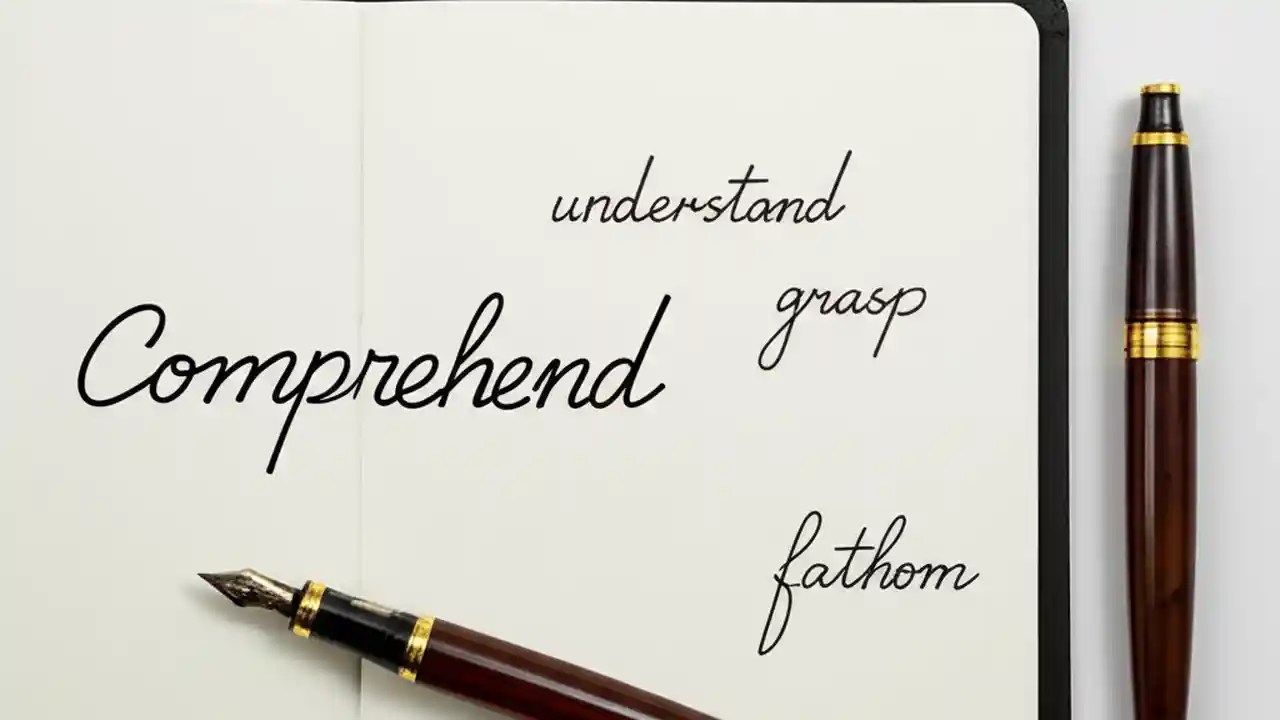 understand
grasp
Comprehend
fathom